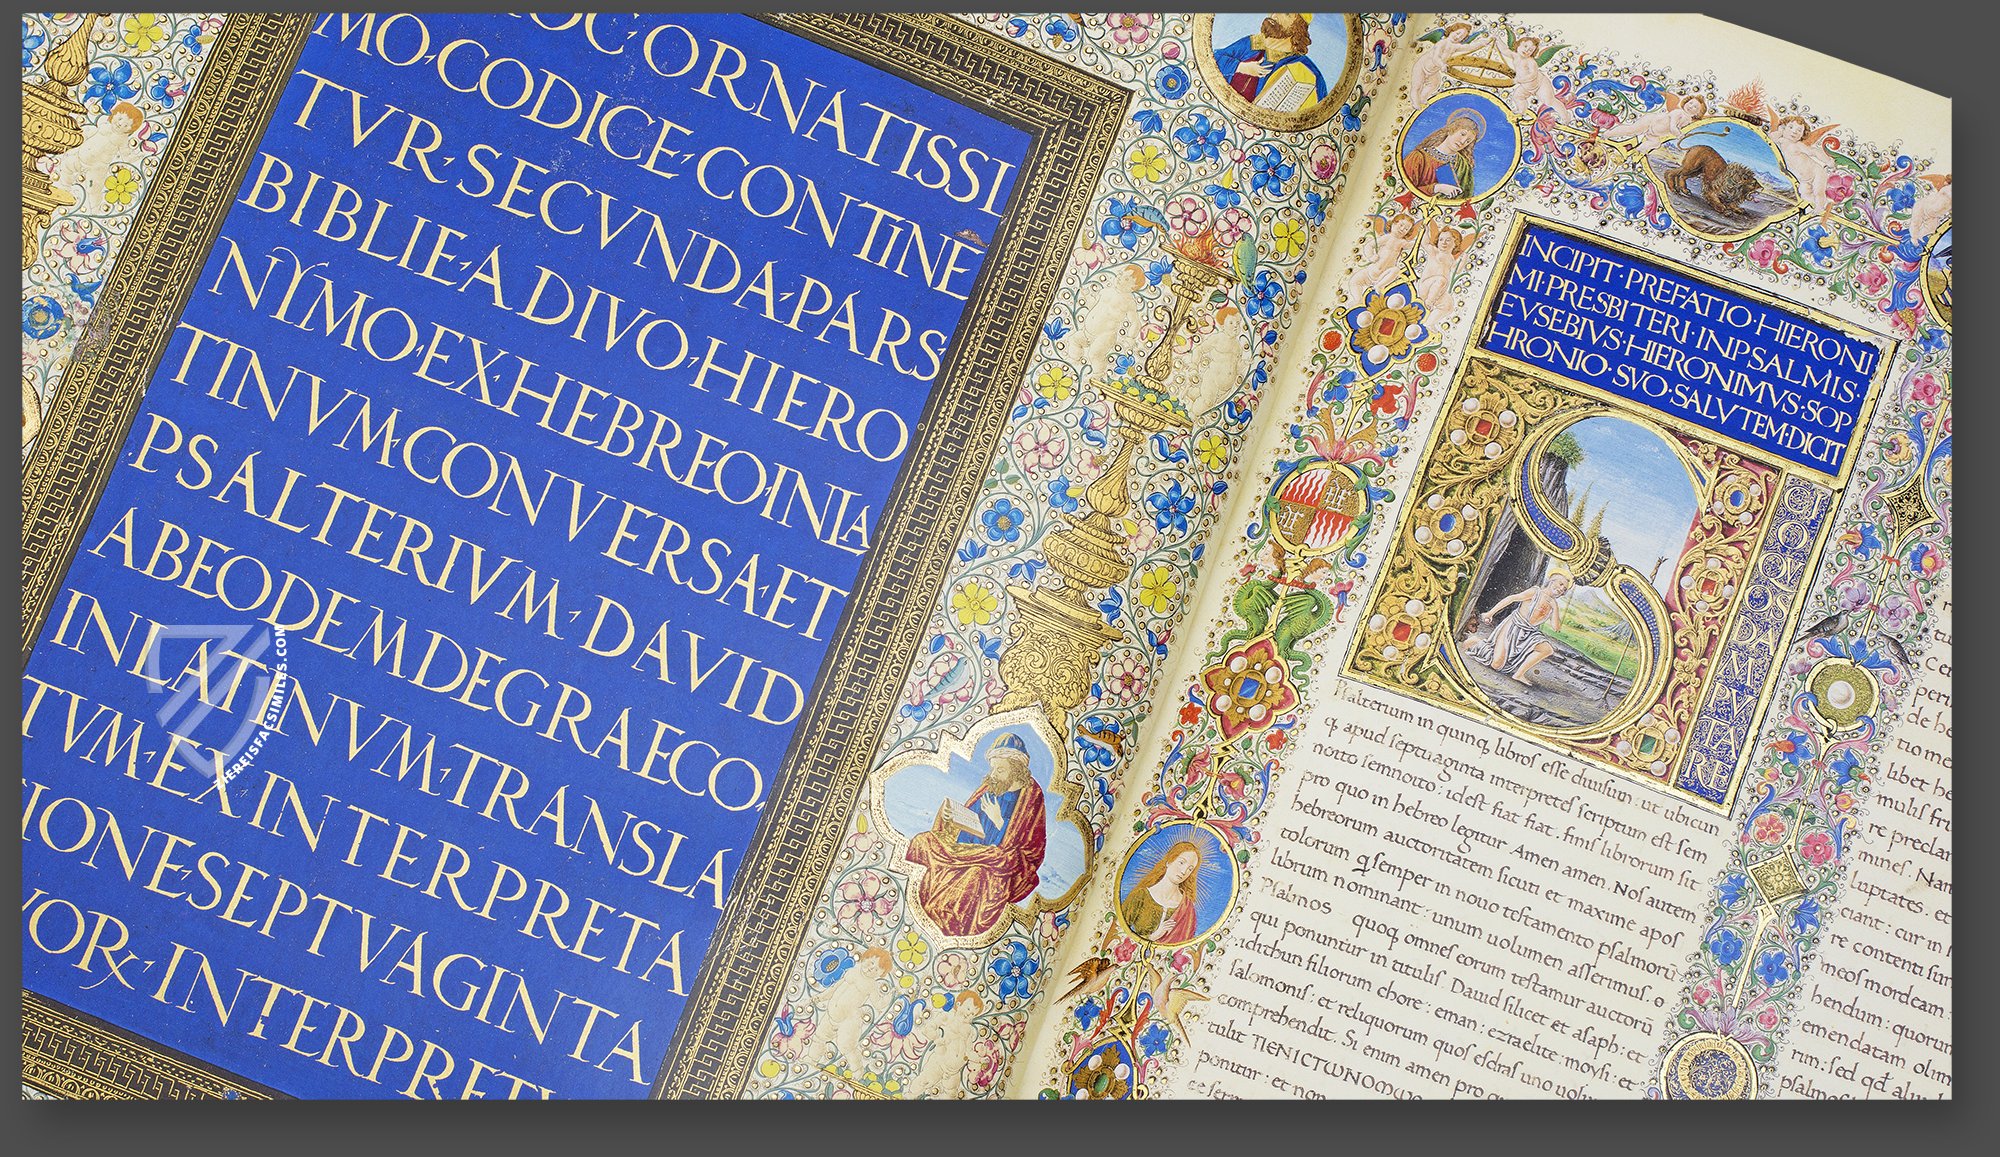 OC·ORNATISSI
MO·CODICE·CONTINE
TVR·SECVNDA·PARS
BIBLIE·A DIVO·HIERO
NYMO·EX·HEBREO·IN LA
TINVM·CONVERSA·ET
PSALTERIVM·DAVID
ABEODEM DE GRAECO,
IN LATINVM·TRANSLA
TVM·EX INTERPRETA
TIONE·SEPTVAGINTA
VOR&·INTERPRET
THEREISFACSIMILES.COM
INCIPIT·PREFATIO·HIERONI
MI·PRESBITERI·INPSALMIS·
EVSEBIVS·HIERONIMVS·SOP
HRONIO·SVO·SALVTEM·DICIT
S
Psalterium in quinq libros esse diuisum ut ubicun
q apud septuaginta interpretes scriptum est sem
noito semnoito: idest fiat fiat: finis librorum sit
pro quo in hebreo legitur Amen amen. Nos autem
hebreorum auctoritatem sicuti et maxime apos
tolorum q semper in nouo testamento psalmorū
librum nominant: unum uolumen asserimus. o
Psalmos quoq omnes eorum testamur auctorū
qui ponuntur in titulis. Dauid silicet et asaph: et
idithun filiorum chore: eman: ezraelite: moysi: et
salomonis: et reliquorum quos esdras uno uolu
comprehendit. Si enim amen pro
tulit
ponitur: et non
libet he
muls fri
re preclar
mines. Nam
luptates. et
ciant: cur in
re contenti sim
meos mordeam
hendum: quorum
emendatam olim
rim: sed qd
psalmos